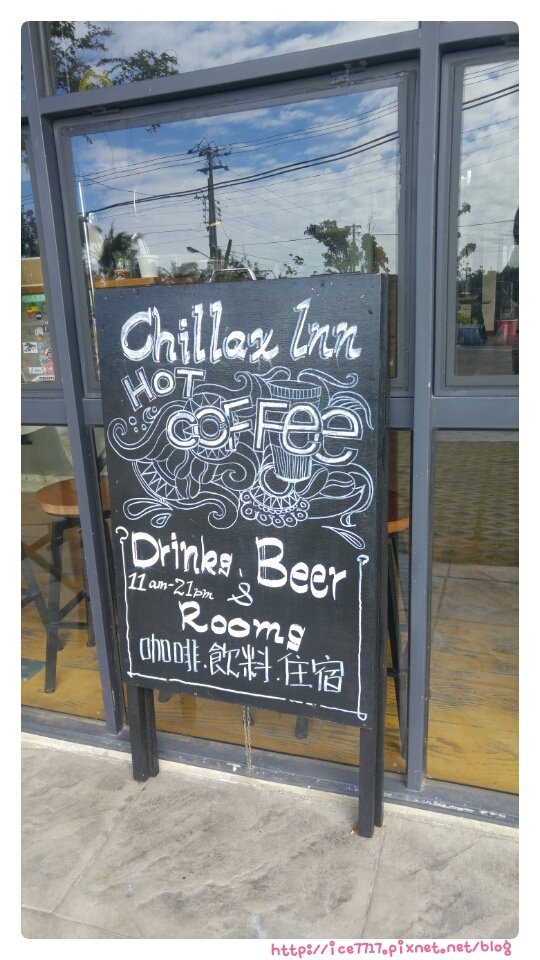 Chillax Inn
HOT
COFFee
Drinks, Beer
11am-21pm &
Rooms
咖啡.飲料.住宿
http://ice7717.pixnet.net/blog